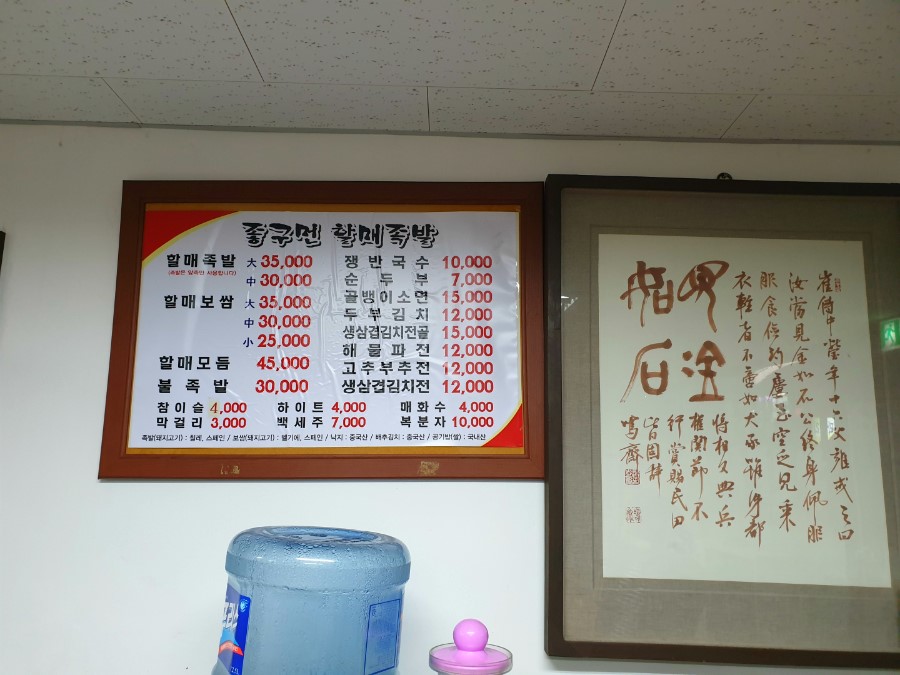 좋구멘 할매족발
할매족발 大 35,000
(족발은 앞족만 사용합니다)
中 30,000
할매보쌈 大 35,000
中 30,000
小 25,000
할매모듬 45,000
불족발 30,000
쟁반국수 10,000
순두부 7,000
골뱅이소면 15,000
두부김치 12,000
생삼겹김치전골 15,000
해물파전 12,000
고추부추전 12,000
생삼겹김치전 12,000
참이슬 4,000 하이트 4,000 매화수 4,000
막걸리 3,000 백세주 7,000 복분자 10,000
족발(돼지고기) : 칠레, 스페인 / 보쌈(돼지고기) : 벨기에, 스페인 / 낙지 : 중국산 / 배추김치 : 중국산 / 공기밥(쌀) : 국내산
見金
如石
崔侍中瑩年十六父雍戒之曰
汝當見金如石公終身佩服
服食儉約屢至空乏見乘
衣輕者不啻如犬豕雖身都
將相久典兵
權關節不
行賞賜民田
皆固辭